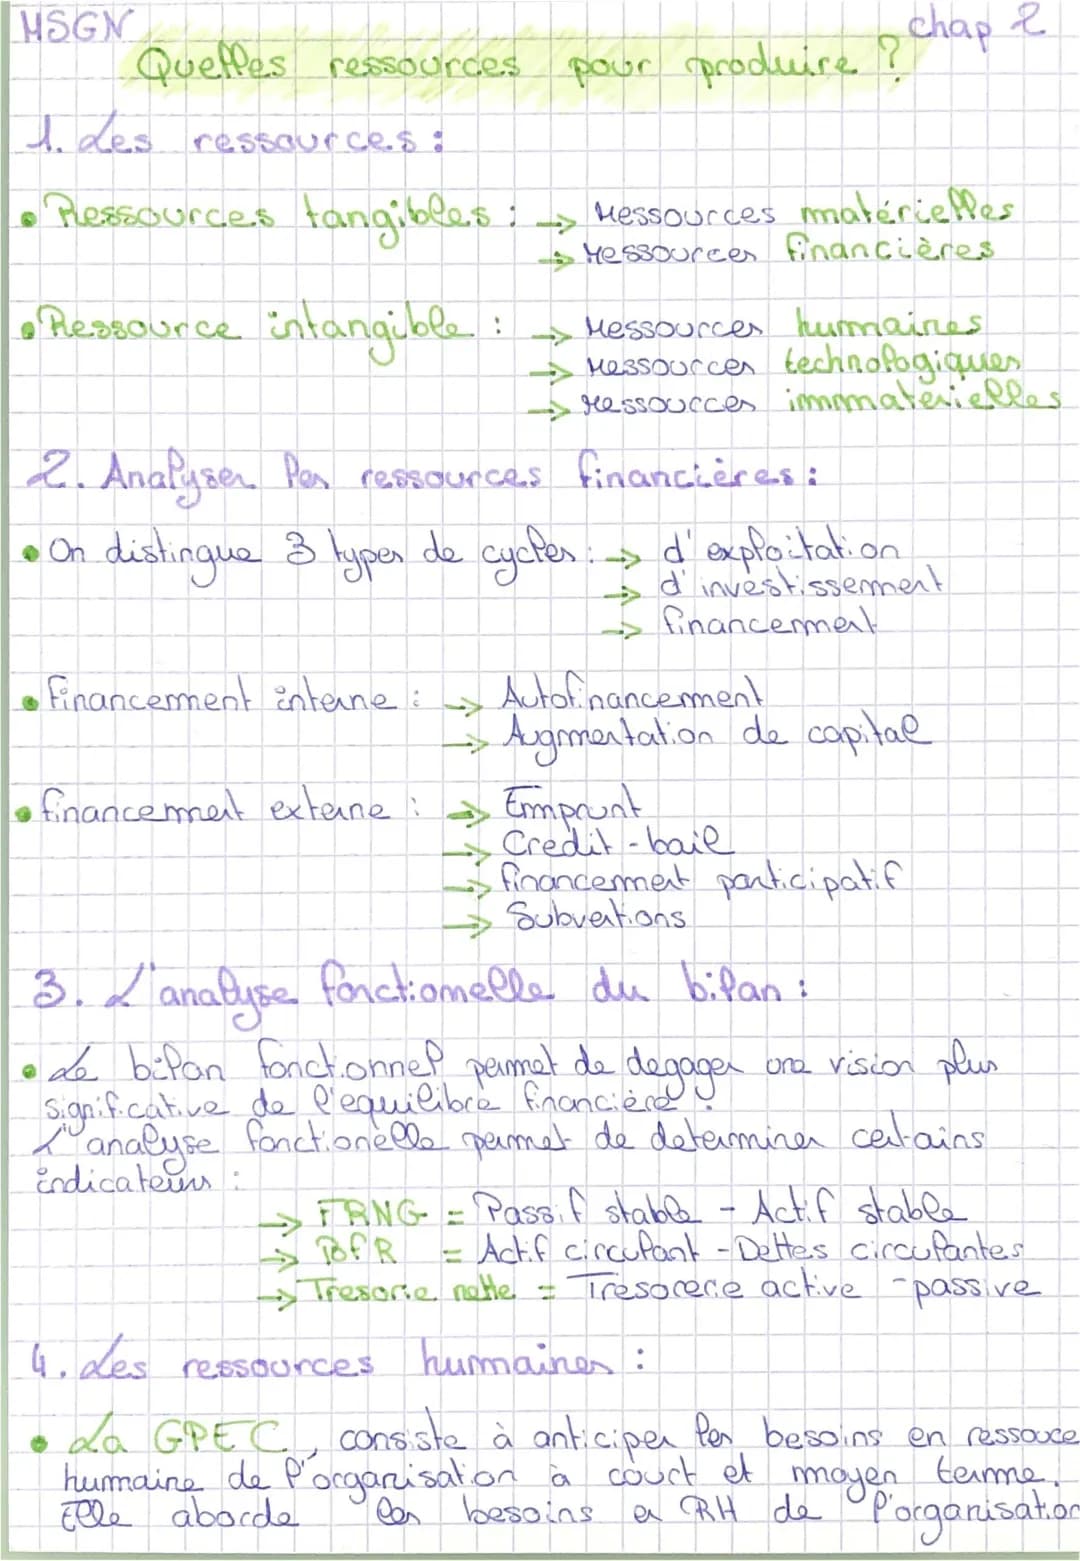 MSGN chap 2
Quelles ressources pour produire ?
1. Les ressources :
• Ressources tangibles : → ressources matérielles
→ ressources financières
• Ressource intangible : → ressources humaines
→ ressources technologiques
→ ressources immaterielles
2. Analyser les ressources financières :
• On distingue 3 types de cycles : → d'exploitation
→ d'investissement
→ financement
• Financement interne : → Autofinancement
→ Augmentation de capital
• financement externe : → Emprunt
→ Credit-bail
→ financement participatif
→ Subventions
3. L'analyse fonctionnelle du bilan :
• Le bilan fonctionnel permet de degager une vision plus
significative de l'equilibre financière.
L'analyse fonctionelle permet de determiner certains
indicateurs :
→ FRNG = Passif stable - Actif stable
→ BfR = Actif circulant - Dettes circulantes
→ Tresorie nette = Tresorerie active - passive
4. Les ressources humaines :
• La GPEC, consiste à anticiper les besoins en ressouce
humaine de l'organisation à court et moyen terme.
Elle aborde les besoins en RH de l'organisation